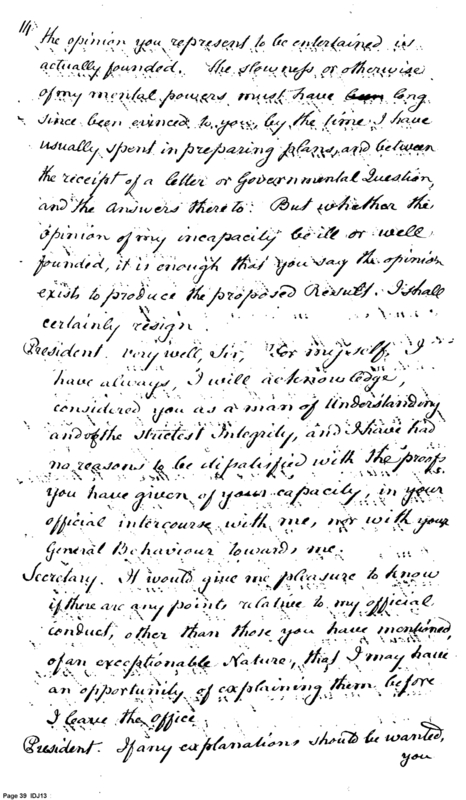 14
the opinion you represent to be entertained is
actually founded. The slowness or otherwise
of my mental powers must have been long
since been evinced to you, by the time I have
usually spent in preparing plans, and between
the receipt of a letter or Governmental Question,
and the answers thereto. But whether the
opinion of my incapacity be ill or well
founded, it is enough that you say the opinion
exists to produce the proposed Result. I shall
certainly resign.
President. Very well, Sir, For myself, I
have always, I will acknowledge,
considered you as a man of Understanding
and of the strictest Integrity, and I have had
no reasons to be dissatisfied with the proofs
you have given of your capacity, in your
official intercourse with me, nor with your
General Behaviour towards me.
Secretary. It would give me pleasure to know
if there are any points relative to my official
conduct, other than those you have mentioned,
of an exceptionable Nature, that I may have
an opportunity of explaining them before
I leave the office
President. If any explanations should be wanted,
you
Page 39 IDJ13